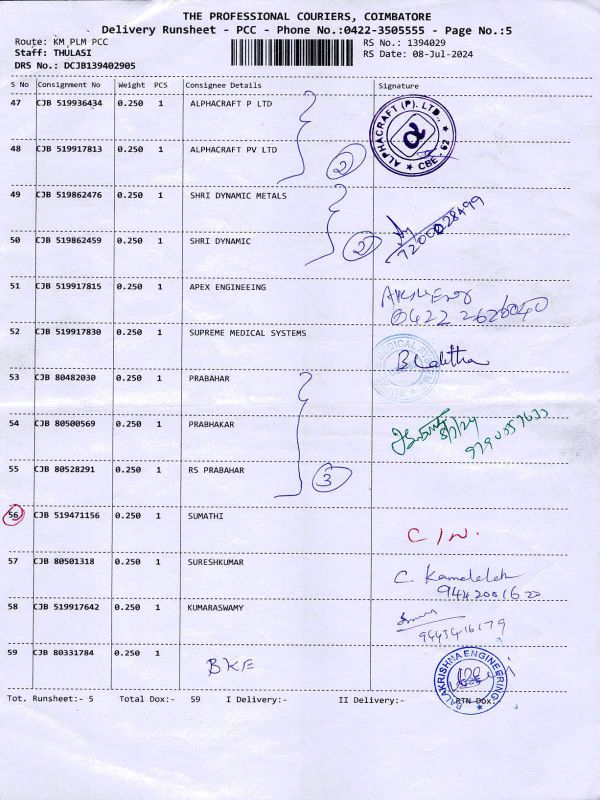 THE PROFESSIONAL COURIERS, COIMBATORE
Delivery Runsheet - PCC - Phone No.:0422-3505555 - Page No.:5
Route: KM PLM PCC
RS No.: 1394029
Staff: THULASI
RS Date: 08-Jul-2024
DRS No.: DCJB139402905
S No Consignment No Weight PCS Consignee Details Signature
47 CJB 519936434 0.250 1 ALPHACRAFT P LTD
ALPHACRAFT (P). LTD., ★ CBE - 62 ★
48 CJB 519917813 0.250 1 ALPHACRAFT PV LTD
2
49 CJB 519862476 0.250 1 SHRI DYNAMIC METALS
50 CJB 519862459 0.250 1 SHRI DYNAMIC
2
7200028499
51 CJB 519917815 0.250 1 APEX ENGINEEING
0422 2626040
52 CJB 519917830 0.250 1 SUPREME MEDICAL SYSTEMS
53 CJB 80482030 0.250 1 PRABAHAR
54 CJB 80500569 0.250 1 PRABHAKAR
8/7/24
55 CJB 80528291 0.250 1 RS PRABAHAR
3
56 CJB 519471156 0.250 1 SUMATHI
C/N.
57 CJB 80501318 0.250 1 SURESHKUMAR
58 CJB 519917642 0.250 1 KUMARASWAMY
9443416179
59 CJB 80331784 0.250 1
BKE
BALAKRISHNA ENGINEERING ★
Tot. Runsheet:- 5 Total Dox:- 59 I Delivery:- II Delivery:- RTN Dox: